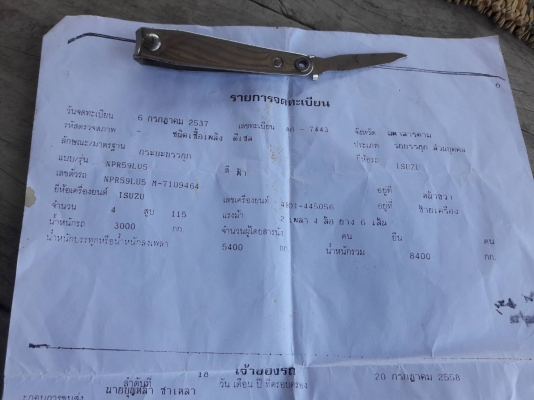 รายการจดทะเบียน
วันจดทะเบียน 6 กรกฎาคม 2537 เลขทะเบียน - 7443 จังหวัด มหาสารคาม
รหัสตรวจสภาพ - ชนิดเชื้อเพลิง ดีเซล ประเภท รถบรรทุก ส่วนบุคคล
ลักษณะ/มาตรฐาน กระบะบรรทุก ISUZU
แบบ/รุ่น NPR59LU5 สี ฟ้า
เลขตัวรถ NPR59LU5 M-7109464 อยู่ที่ หน้าขวา
ยี่ห้อเครื่องยนต์ ISUZU เลขเครื่องยนต์ -445056 อยู่ที่ ซ้ายเครื่อง
จำนวน 4 สูบ 115 แรงม้า 2 เพลา 4 ล้อ ยาง 6 เส้น
น้ำหนักรถ 3000 กก. จำนวนผู้โดยสารนั่ง คน ยืน คน
น้ำหนักบรรทุกหรือน้ำหนักลงเพลา 5400 กก. น้ำหนักรวม 8400 กก.
เจ้าของรถ
ลำดับที่ 18 วัน เดือน ปี ที่ครอบครอง 20 กรกฎาคม 2558